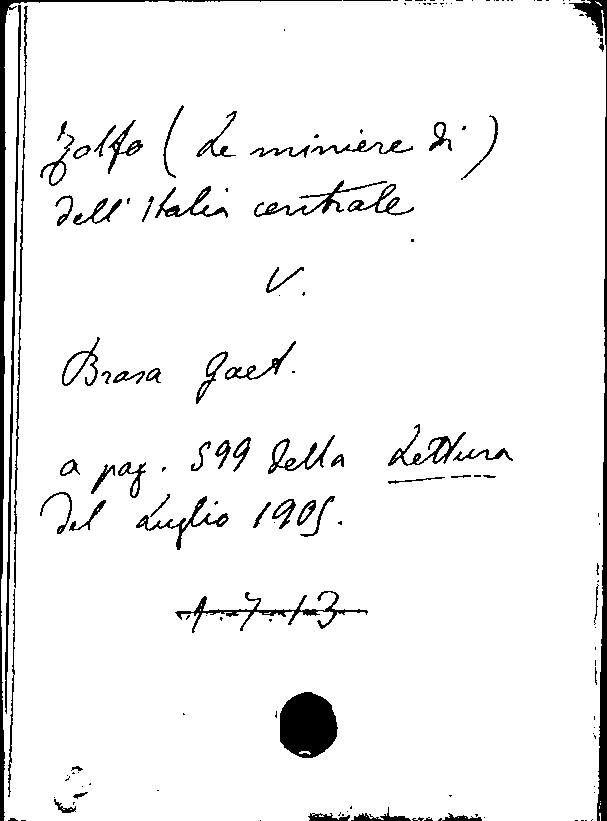 Zolfo (Le miniere di)
dell'Italia centrale
V.
Brasa Gaet.
a pag. 599 della Lettura
del Luglio 1905.
1.7.13